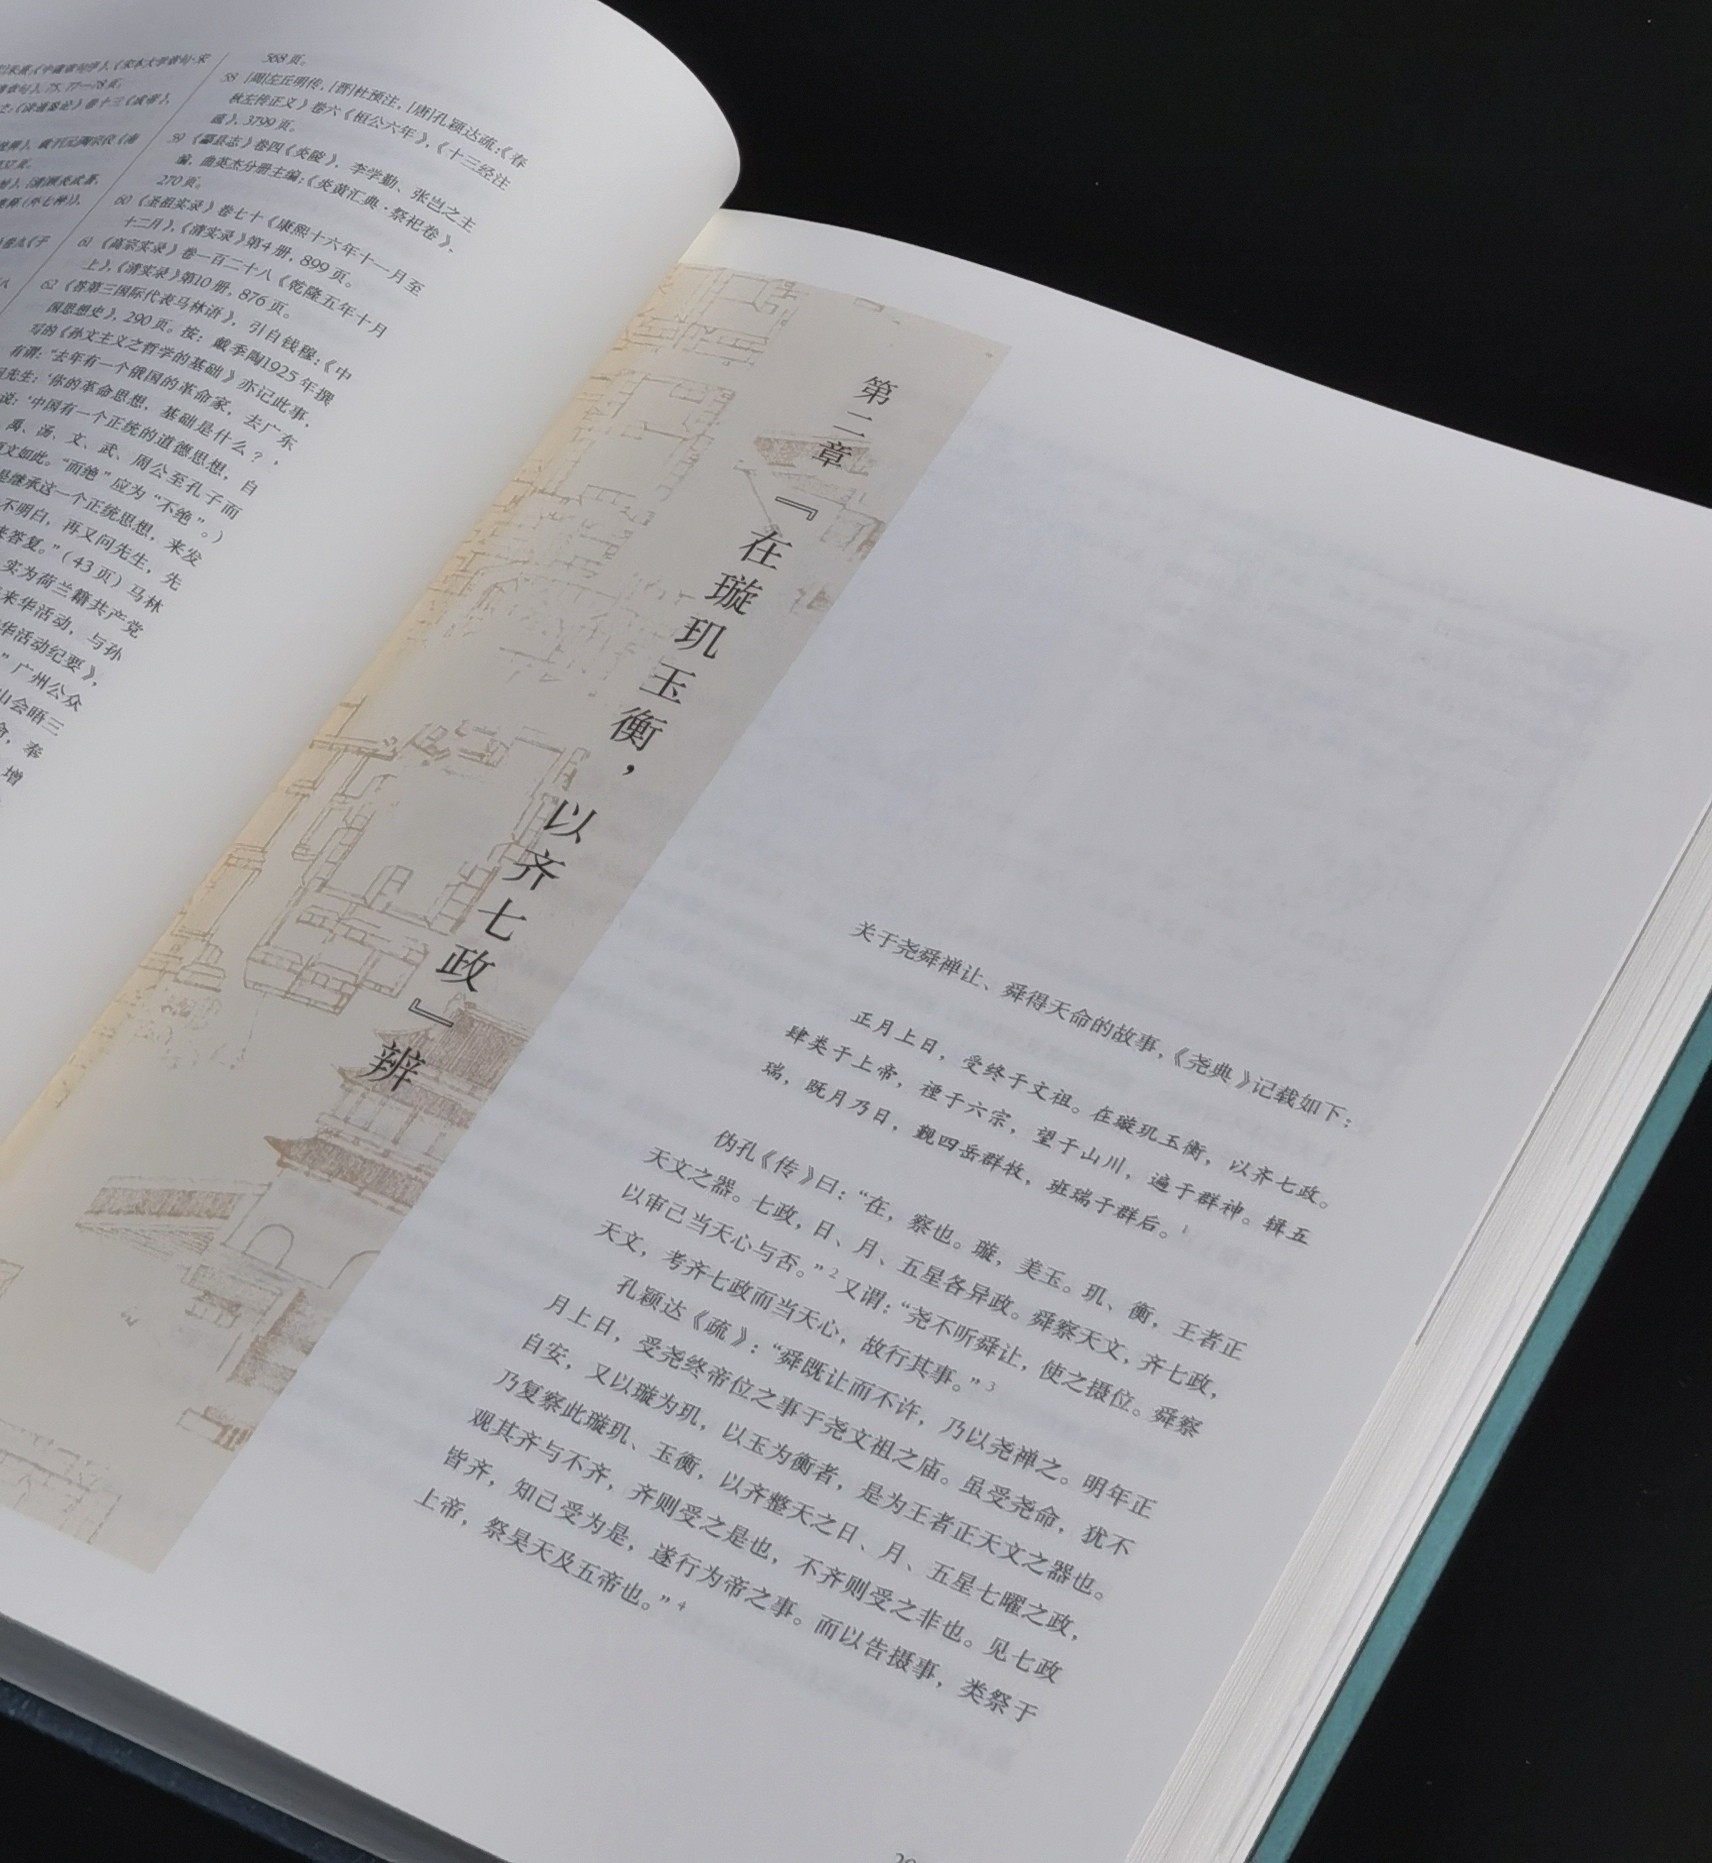 568页。
58 [周]左丘明传，[晋]杜预注，[唐]孔颖达疏：《春
秋左传正义》卷六《桓公六年》，《十三经注
疏》，3799页。
59 《酃县志》卷四《炎陵》，李学勤、张岂之主
编，曲英杰分册主编：《炎黄汇典·祭祀卷》，
270页。
60 《圣祖实录》卷七十《康熙十六年十一月至
十二月》，《清实录》第4册，899页。
61 《高宗实录》卷一百二十八《乾隆五年十月
上》，《清实录》第10册，876页。
62 《答第三国际代表马林语》，引自钱穆：《中
国思想史》，290页。按：戴季陶1925年撰
写的《孙文主义之哲学的基础》亦记此事，
有谓：“去年有一个俄国的革命家，去广东
先生：‘你的革命思想，基础是什么？’
说：‘中国有一个正统的道德思想，自
禹、汤、文、武、周公至孔子而
文如此。“而绝”应为“不绝”。）
是继承这一个正统思想，来发
不明白，再又问先生，先
来答复。”（43页）马林
实为荷兰籍共产党
来华活动，与孙
华活动纪要》，
”广州公众
山会晤三
奉
增
第二章
『在璇玑玉衡，以齐七政』辨
关于尧舜禅让、舜得天命的故事，《尧典》记载如下：
正月上日，受终于文祖。在璇玑玉衡，以齐七政。
肆类于上帝，禋于六宗，望于山川，遍于群神。辑五
瑞，既月乃日，觐四岳群牧，班瑞于群后。1
伪孔《传》曰：“在，察也。璇，美玉。玑、衡，王者正
天文之器。七政，日、月、五星各异政。舜察天文，齐七政，
以审己当天心与否。”2又谓：“尧不听舜让，使之摄位。舜察
天文，考齐七政而当天心，故行其事。”3
孔颖达《疏》：“舜既让而不许，乃以尧禅之。明年正
月上日，受尧终帝位之事于尧文祖之庙。虽受尧命，犹不
自安，又以璇为玑，以玉为衡者，是为王者正天文之器也。
乃复察此璇玑、玉衡，以齐整天之日、月、五星七曜之政，
观其齐与不齐，齐则受之是也，不齐则受之非也。见七政
皆齐，知己受为是，遂行为帝之事。而以告摄事，类祭于
上帝，祭昊天及五帝也。”4